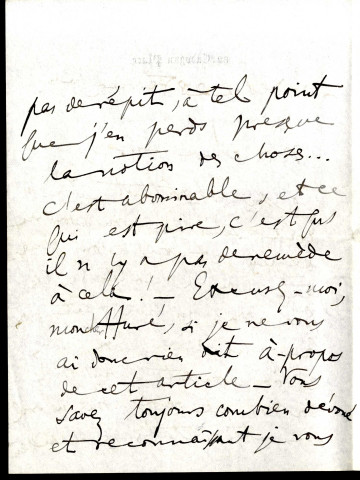 pas de répit, à tel point
que j'en perds presque
la notion des choses...
c'est abominable, et ce
qui est pire, c'est qu'
il n'y a pas de remède
à cela! — Excusez-moi,
mon cher Huré, si je ne vous
ai donc rien dit à-propos
de cet article — Vous
savez toujours combien dévoué
et reconnaissant je vous